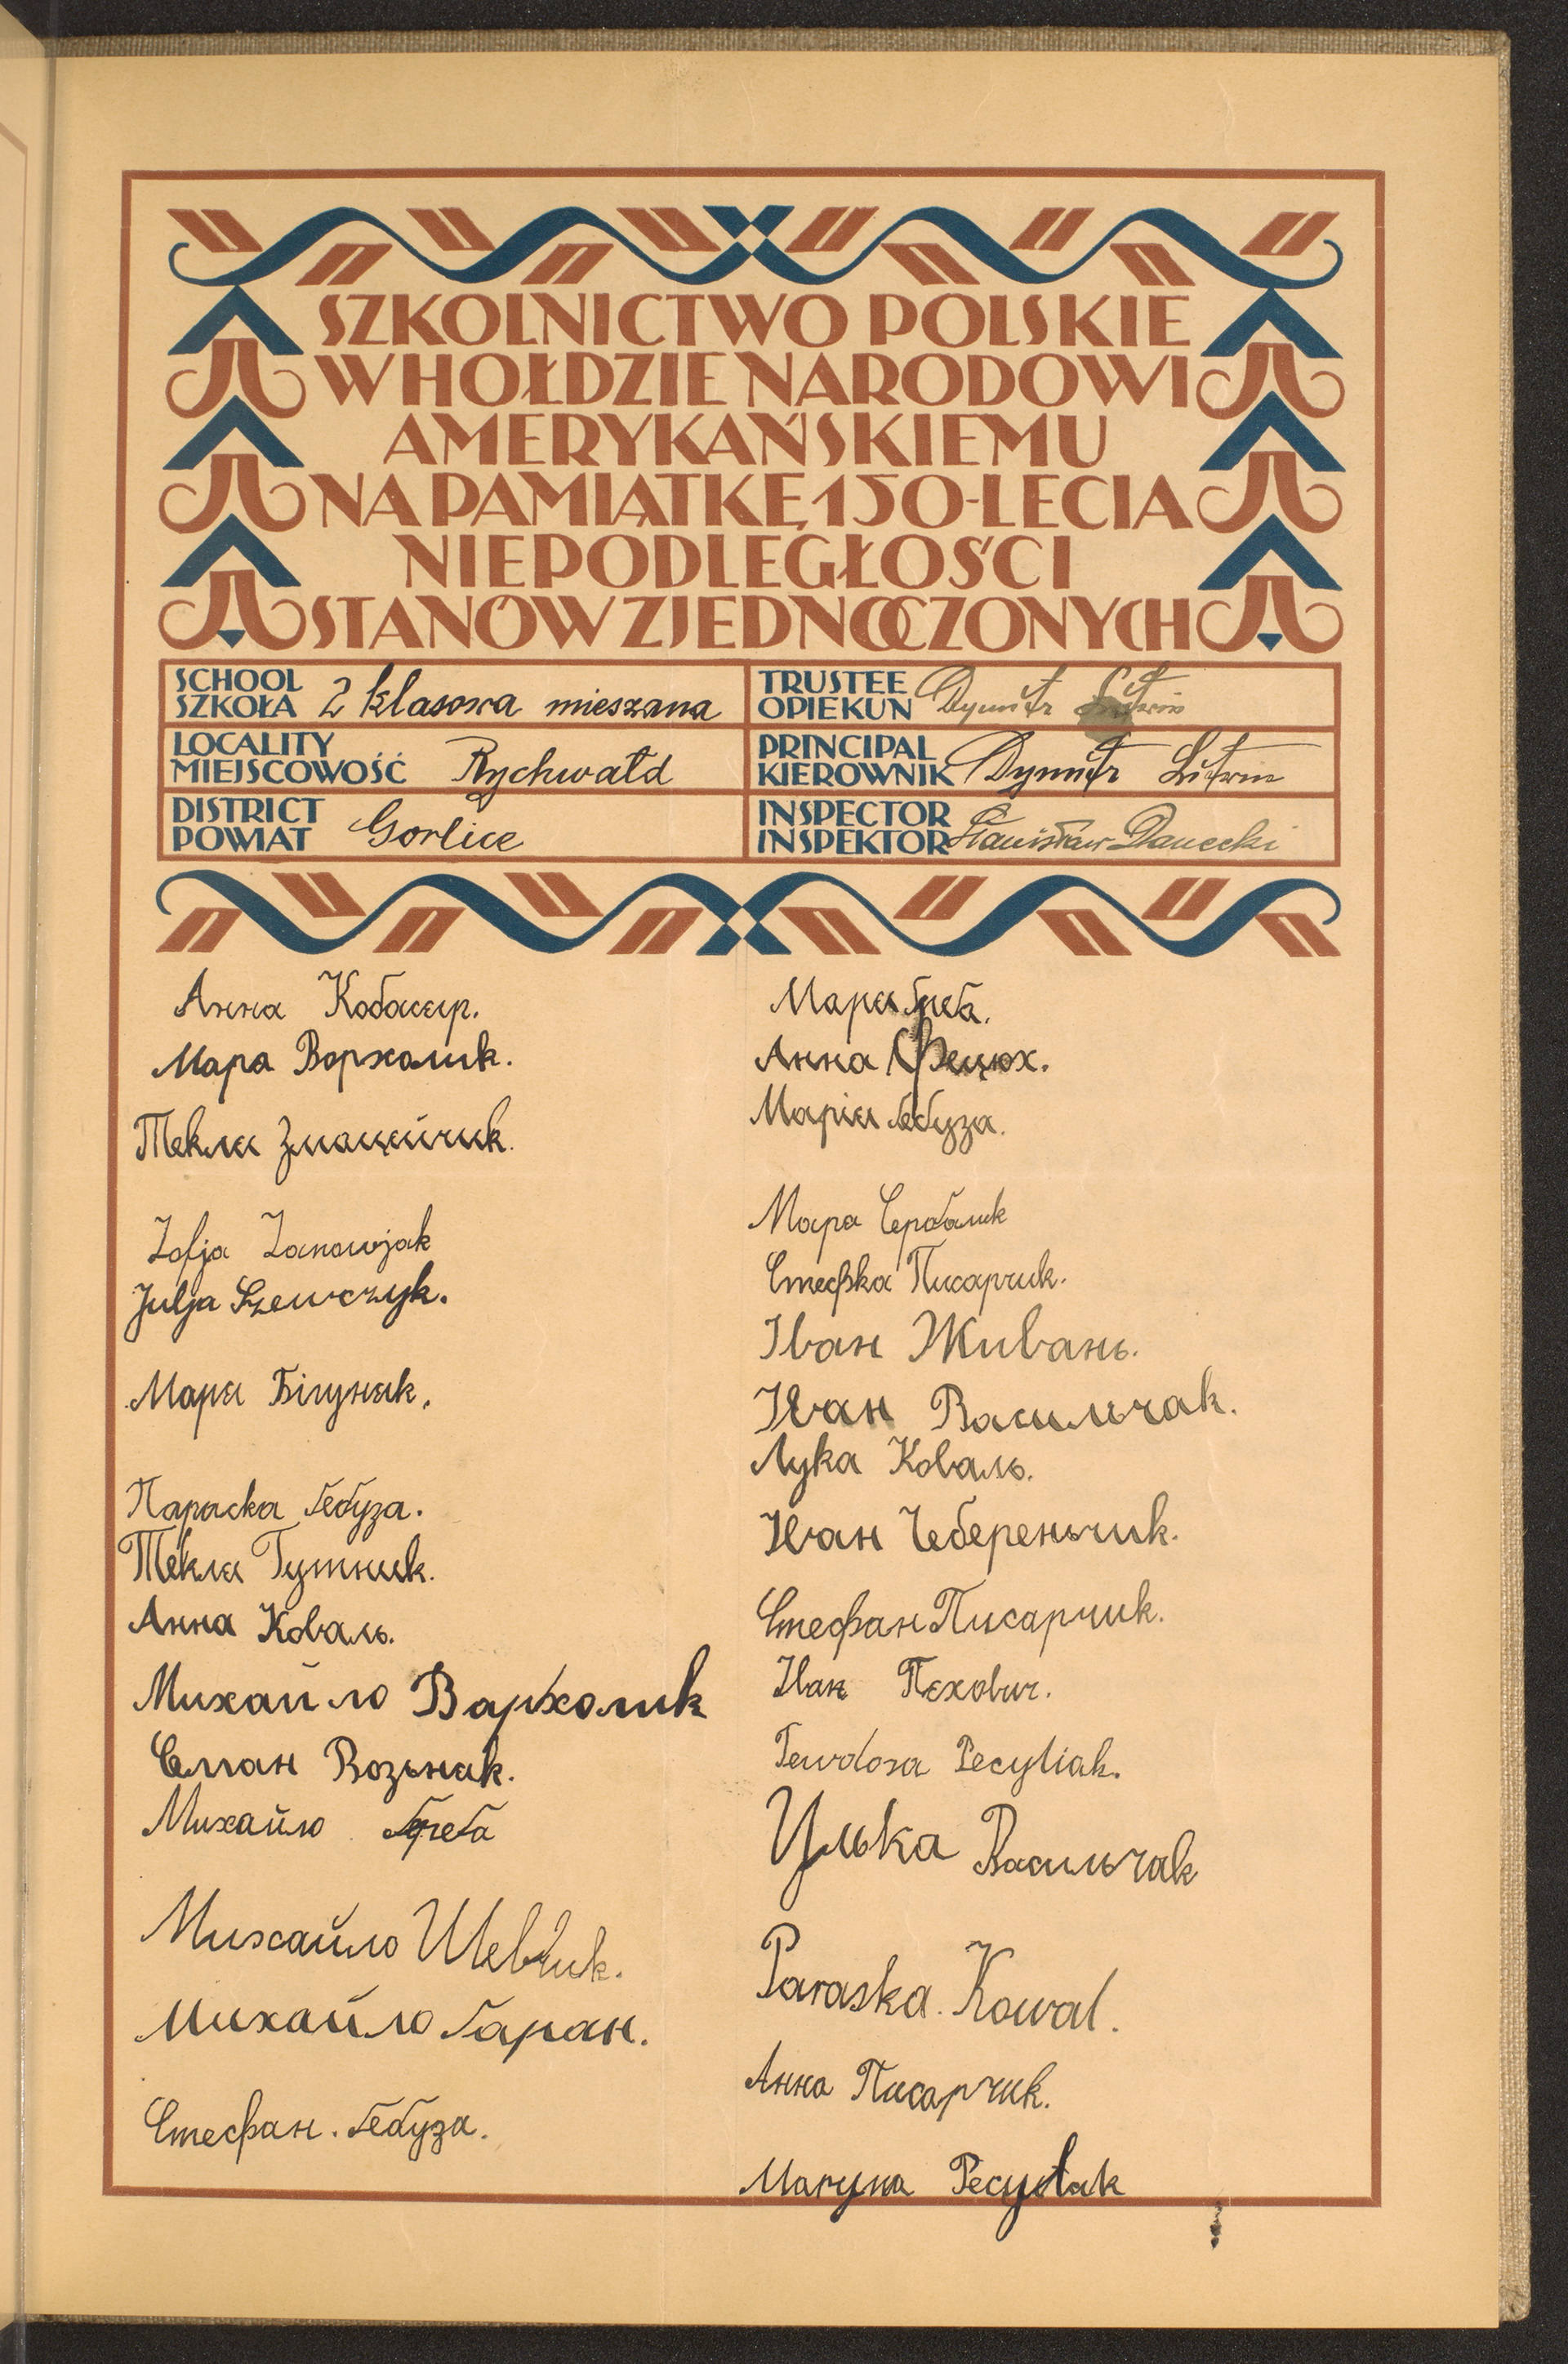 SZKOLNICTWO POLSKIE
W HOŁDZIE NARODOWI
AMERYKAŃSKIEMU
NA PAMIĄTKĘ 150-LECIA
NIEPODLEGŁOŚCI
STANÓW ZJEDNOCZONYCH
SCHOOL
SZKOŁA 2 klasowa mieszana
TRUSTEE
OPIEKUN Dymitr Litwin
LOCALITY
MIEJSCOWOŚĆ Rychwałd
PRINCIPAL
KIEROWNIK Dymitr Litwin
DISTRICT
POWIAT Gorlice
INSPECTOR
INSPEKTOR Stanisław Danecki
Анна
Мара Вархолик.
Текля
Zofja Zanowjak
Julja Szewczyk.
Маря Білуняк.
Параска Ґебуза.
Текля Гутник.
Анна Коваль.
Михайло Вархолик
Семан Возьняк.
Михайло Ґреба
Михайло Шевчик.
Михайло Ґаран.
Стефан. Ґебуза.
Маря Ґреба.
Анна Фецюх.
Марія Ґебуза.
Мара
Стефка Писарчик.
Іван Живань.
Іван Васильчак.
Лука Коваль.
Іван Чеберенчик.
Стефан Писарчик.
Іван Пехович.
Teodora Pecyliak.
Улька Васильчак
Paraska. Kowal.
Анна Писарчик.
Maryna Pecyłak